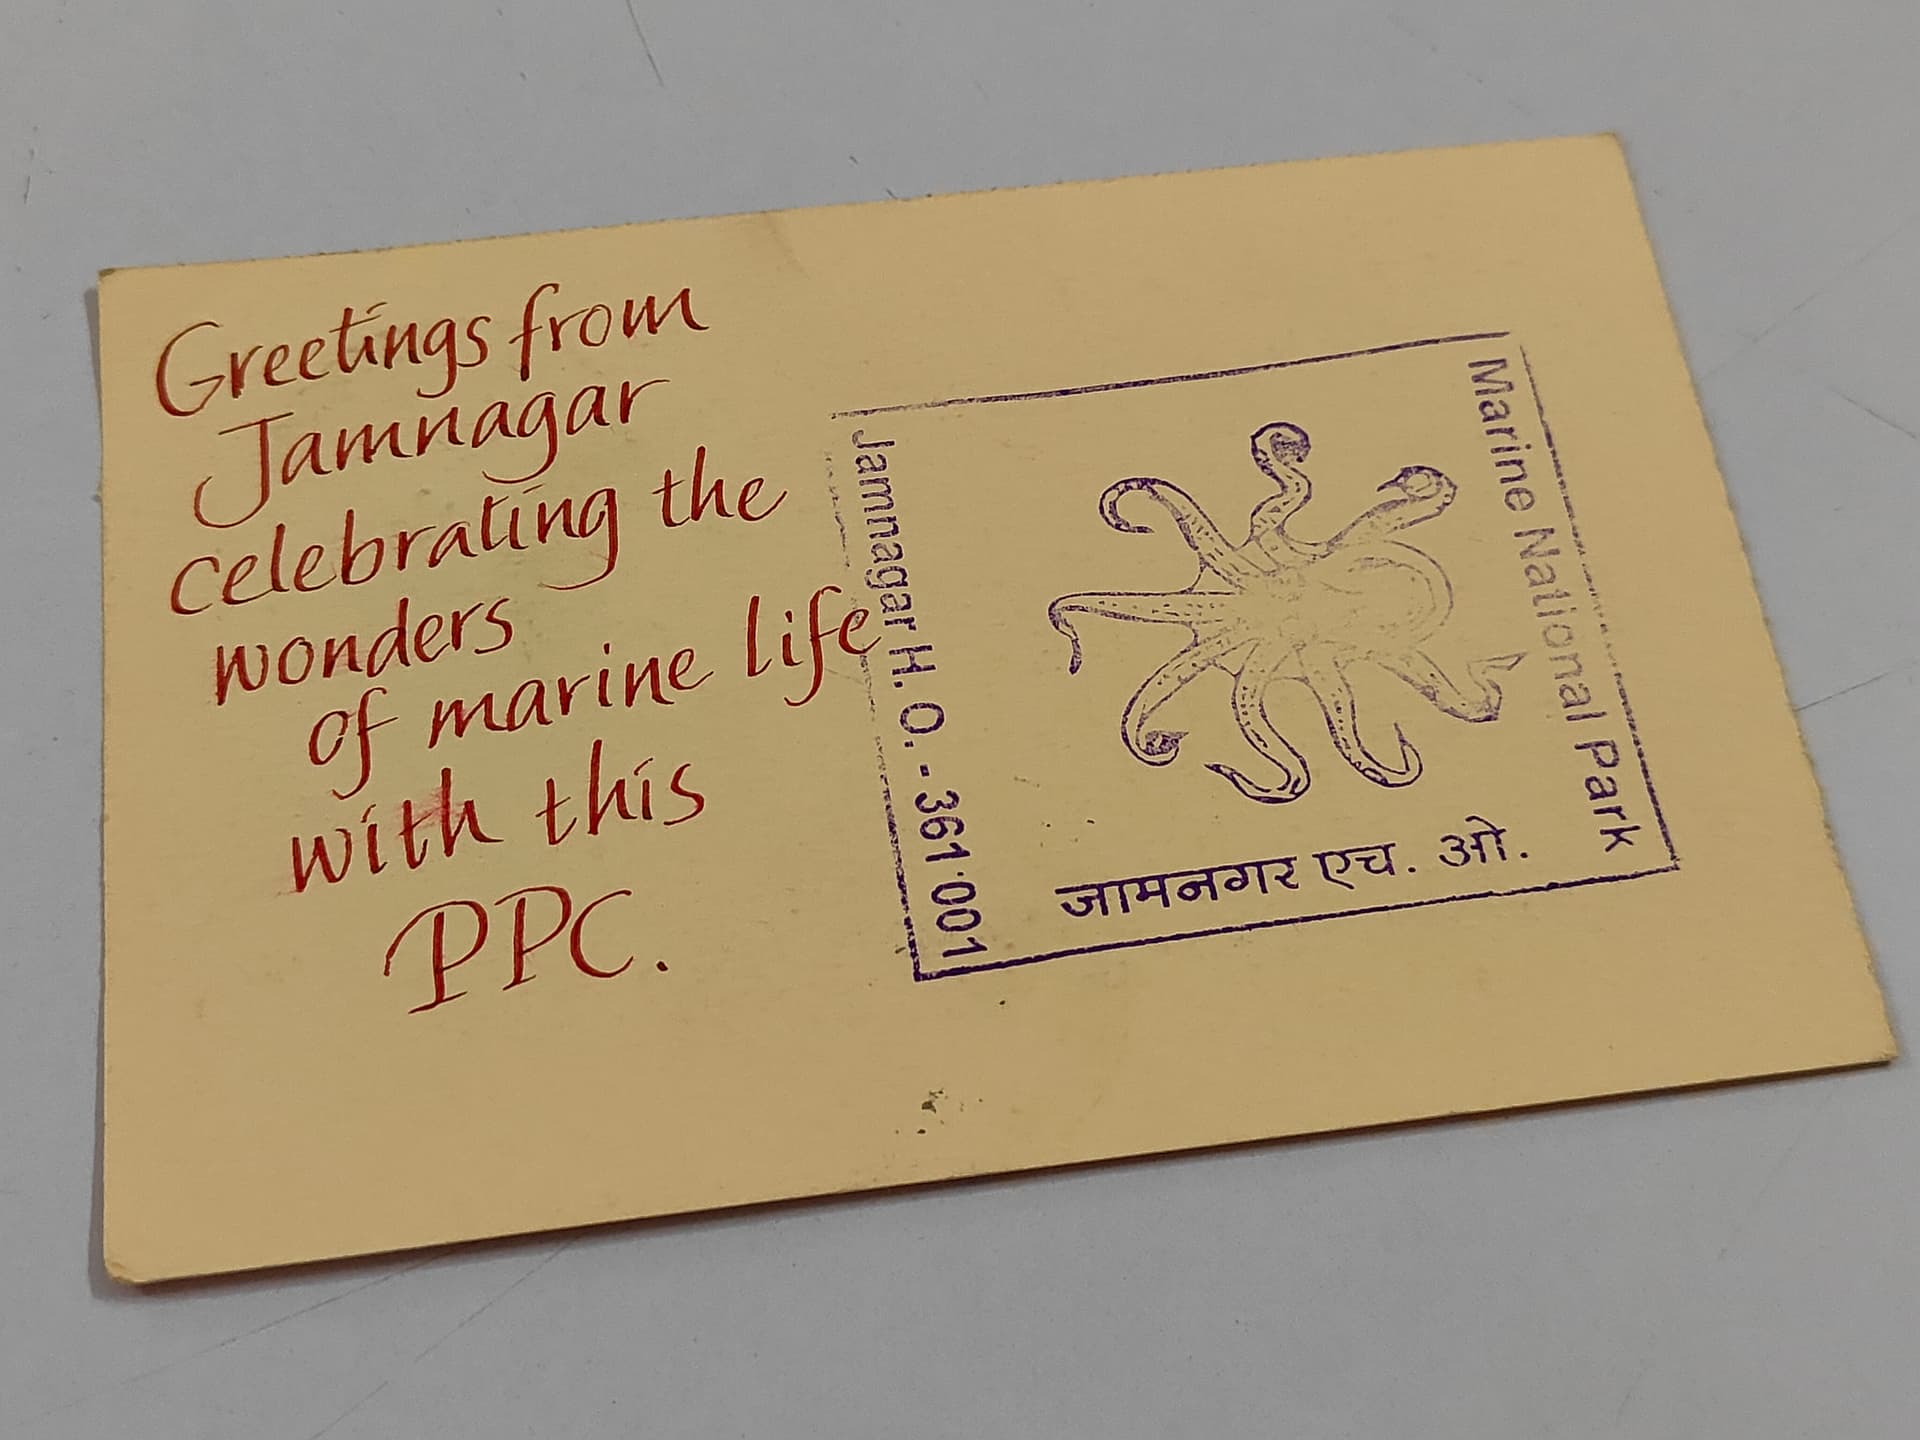 Greetings from
Jamnagar
celebrating the
wonders
of marine life
with this
PPC.
Jamnagar H. O. - 361 001
Marine National Park
जामनगर एच. ओ.